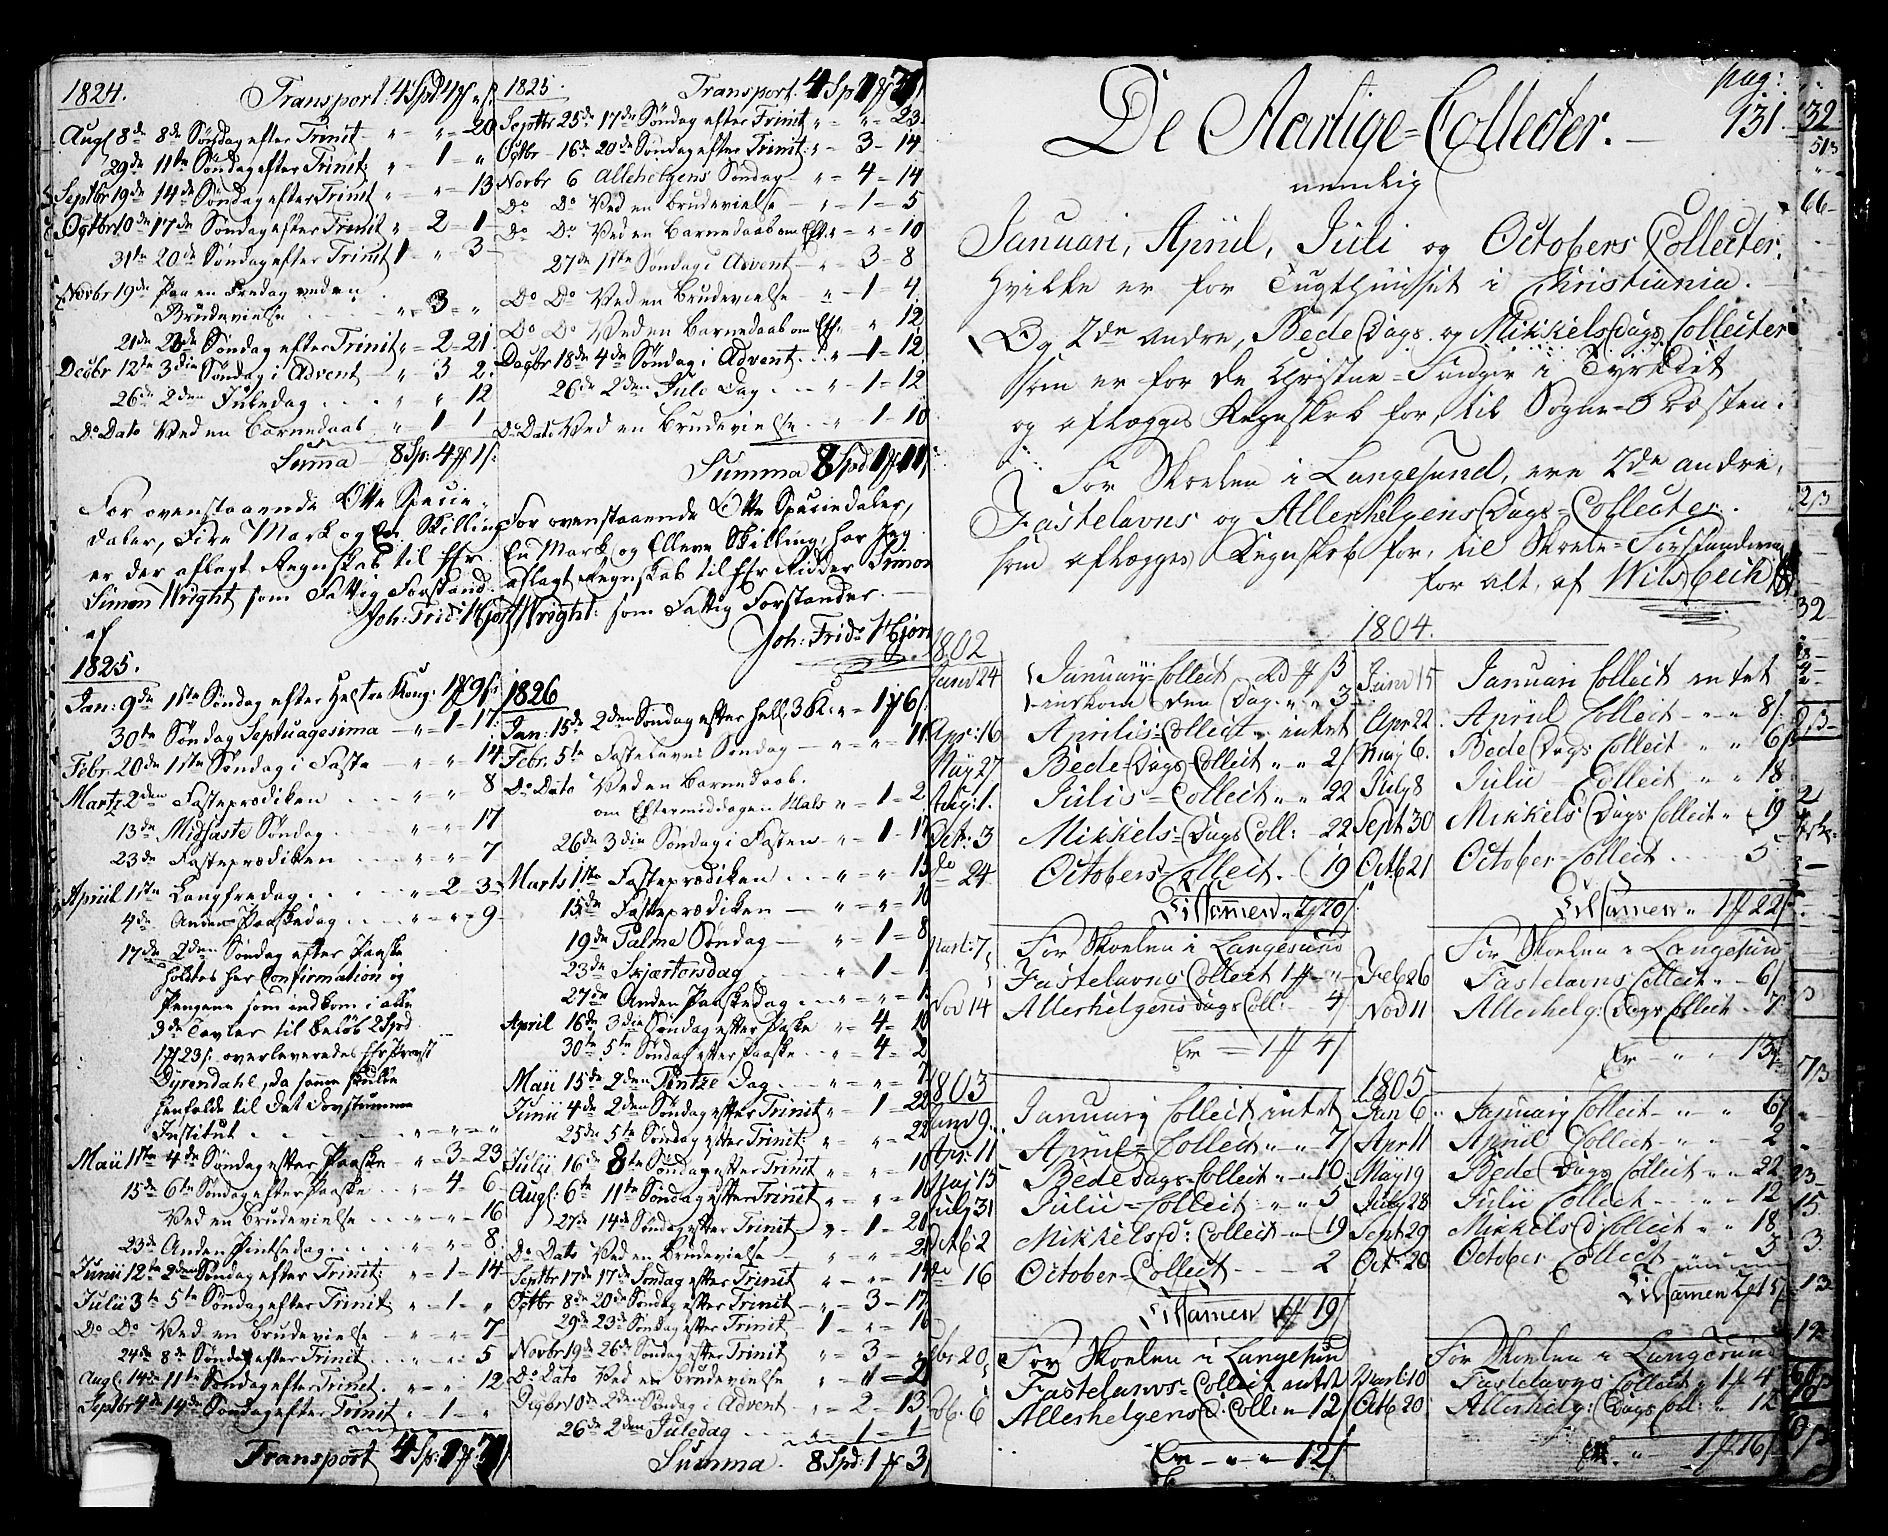 1824.
Transport: 4 Spd 4 ff " s.
Augl 8de 8de Søndag efter Trinit - " " = 20
29de 11te Søndag efter Trinit: " 1 = "
Septbr 19de 14de Søndag efter Trinit " " = 13
Octbr 10de 17de Søndag efter Trinit " = 2 = 1
31te 20de Søndag efter Trinit 1 " = 3
Novbr 19de Paa en Fredag ved en
Brudevielse . . . " = 3 = "
21de 23de Søndag efter Trinit " = 2 = 21
Decbr 12te 3die Søndag i Advent - " = 3 2
26de 2den Juledag . . . " " = 12
Do Dato Ved en Barnedaab " = 1 1
Suma 8 Sp: 4 ff 1 s.
For ovenstaaende Otte Specie-
daler, Fire Mark og En Skilling
er der aflagt Regnskab til Hr.
Simon Wright som Fattig Forstand.
af Joh: Frid: Hjort
1825.
Jan: 9de 1ste Søndag efter Hel. tre Kong. 1 ff 9 s.
30te Søndag Septuagesima - " = 1 = 17
Febr. 20de 1ste Søndag i Faste - " = " 14
Martz 2den Fasteprædiken . . . " = " 8
13de Midfaste Søndag . . . " = " = 17
23de Fasteprædiken . . . " = " = 7
Apriil 1ste Langfredag . . . " = 2 = 3
4de Anden Paaskedag . . . " = " = 9
17de 2den Søndag efter Paaske
holdtes her Confirmation og
Pengene som indkom i alle
3de Tavler til Beløb 2 Spd
1 ff 23 s. overleveredes Hr Provst
Dyrendahl, da samme skulle
henfalde til det Døvstumme
Institut . . . " = " = "
Maii 1ste 4de Søndag efter Paaske - " = 3 = 23
15de 6te Søndag efter Paaske . . " = 4 = 6
Ved en Brudevielse . . . " = " = 16
23de Anden Pintsedag . . . " = " = 8
Junii 12te 2den Søndag efter Trinit: " = 1 = 14
Julii 3te 5te Søndag efter Trinit " = 1 = "
Do Do Ved en Brudevielse - " = " = 7
24de 8de Søndag efter Trinit . . " = " = 5
Augl. 14de 11te Søndag efter Trinit . " = " = 12
Septbr 4de 14de Søndag efter Trinit " = 1 = "
Transport 4 Sp: 1 ff: 71
1825.
Transport: 4 Sp 1 ff 71
Septbr 25de 17de Søndag efter Trinit " = " = 23
Octbr 16de 20de Søndag efter Trinit: " = 3 = 14
Novbr 6 Allehelgens Søndag " = 4 = 14
Do Do Ved en Brudevielse - " = 1 = 5
Do Do Ved en Barnedaab om Efter " = 10
27de 1ste Søndag i Advent - " = 3 = 8
Do Do Ved en Brudevielse " = 1 = 4
Do Do Ved en Barnedaab om Eft: " = 12
Decbr 18de 4de Søndag i Advent . . " = 1 = 12
26de 2den Jule Dag . . . " = 1 = 12
Do Dato Ved en Brudevielse . . " 1 = 10
Summa 8 Spd 1 ff 11 s
For ovenstaaende Otte Speciedaler,
En Mark og Elleve Skilling, har Jeg
aflagt Regnskab til Hr Ridder Simon
Wright: som Fattig Forstander.
Joh: Frid: Hjort
1826
Jan: 15de 2den Søndag efter hell. 3 K: " = 1 ff 6 s.
Febr. 5te Fastelavns Søndag - " = " = 11
Do Dato Ved en Barnedaab.
om Eftermiddagen holdt " = 1 = 2
26de 3die Søndag i Fasten " = 1 = 17
Marts 1ste Fasteprædiken . . . " = " 15
15de Fasteprædiken - " = " = 10
19de Palma Søndag - " = 1 = 8
23de Skjærtorsdag . . . " = 1 = 1
27de Anden Paaskedag . . . " = " = 1
April 16de 3die Søndag efter Paske " = 4 = 10
30te 5te Søndag efter Paaske - . . " = 4 = 2
Maii 15de 2den Pintze Dag - . . . " = " = 7
Junii 4de 2den Søndag efter Trinit " = 1 = 22
25de 5te Søndag efter Trinit: " = " = 22
Julii 16de 8te Søndag efter Trinit " = " = 10
Augl: 6te 11te Søndag efter Trinit " = " = 10
27de 14de Søndag efter Trinit " = 1 = 20
Do Dato Ved en Brudevielse - " = " = 2
Septbr 17de 17de Søndag efter Trinit " = " = 14
Octbr 8de 20de Søndag efter Trinit - " = 3 = 17
29de 23de Søndag efter Trinit - 1 " = 16
Novbr 19de 26de Søndag efter Trinit " = 3 =
Do Dato Ved en Brudevielse " = 1 = 2
Decbr 10de 2den Søndag i Advent " = 2 = 13
26de 2den Juledag . . . " = 1 = 1
Summa. 8 Spd: 1 ff 3 s
pag:
131
De Aarlige=Collecter.
nemlig
Januari, Apriil, Juli og Octobers Collecter.
Hvilke er for Tugthuuset i Christiania.
Og 2de andre, Bede Dags og Mikkels Dags Collecter
som er for de Christne=Fanger i Tyrkiet
og aflægges Regnskab for, til Sogne=Præsten.
For Skoelen i Langesund, ere 2de andre,
Fastelavns og Allerhelgens Dags=Collecter.
som aflægges Regnskab for, til Skoele=Forstanderne
for alt, af
1802
Januarij=Collect Rd ff ß
Janv 24 indkom den Dag " " 3
Apr: 16 Aprilis=Collect - intet
Maij 27 Bede Dags Collect " " 2 s
Aug: 1. Julis=Collect " " 22
Oct: 3 Mikkels=Dags Coll: - 22
do 24 Octobers Collect. - 19
Tilsamen " 2 ff 20 s
For Skoelen i Langesund
Mart: 7 Fastelavns Collect 1 ff - "
Nov 14 Allerhelgens dags Coll: - 4 s
Er = 1 ff 4 s
1803
Janv 9. Januarij Collect intet
Apr: 11 Apriil=Collect " " 7 s
Maj 15 Bede Dags=Collect " " 10
July 31 Julii=Collect " " 5
Octb 2 Mikkels d: Collect " 19
do 16 October=Collect - - 2
Tilsamen 1 ff 19 s
For Skoelen i Langesund
Febr 20 Fastelavns=Collect intet
Nob: 6 Allerhelgens D. Coll: " 12 s
Er - " - " 12 s
1804.
Janv 15 Januari Collect intet
Apr 22. Apriil Collect - " " 8 s.
Maij 6. Bede Dags Collect " " 6 s
July 8 Julii - Collect " " 18
Sept 30 Mikkels Dags Collect " 19
Octb 21 October=Collect . . . 5
Tilsamen " 1 ff 22 s
For Skoelen i Langesund
Feb 26 Fastelavns Collect " - 6 s
Nov 11 Allerhelg: Dags Collect - 7
Er - " " 13 s
1805
Jan 6 Januarij Collect - " " 6 s
Apr 11 Apriil Collect - " " 2
May 19 Bede Dags Collect " " 22
July 28 Julii Collect - " " 12
Sept 29 Mikkels d. Collect " " 18
Oct: 20 October Collect " " 3
Tilsamen 2 ff 15 s
For Skoelen i Langesund
Marti: 10 Fastelavns Collect " 1 ff 4 s
Octb 20 Allerhelg: Dags Coll: " 12
Er. " 1 ff 16 s